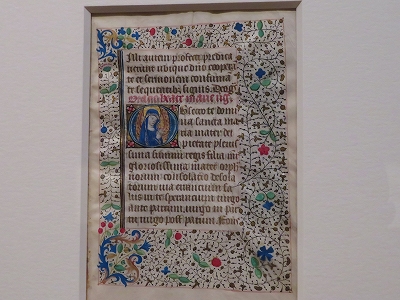 Illi autem profecti predica
uerunt ubique dno coopera
te et sermonem confirma
te sequentib signis. Deo g
Oratio beate marie uirg
Obsecro te domi
na sancta ma
ria mater dei
pietate plenis
sima summi regis filia m
gloriosissima mater orpha
norum consolatio desola
torum uia errantium sa
lus in te sperantium uirgo
ante partum. uirgo in par
tu uirgo post partum. Fons